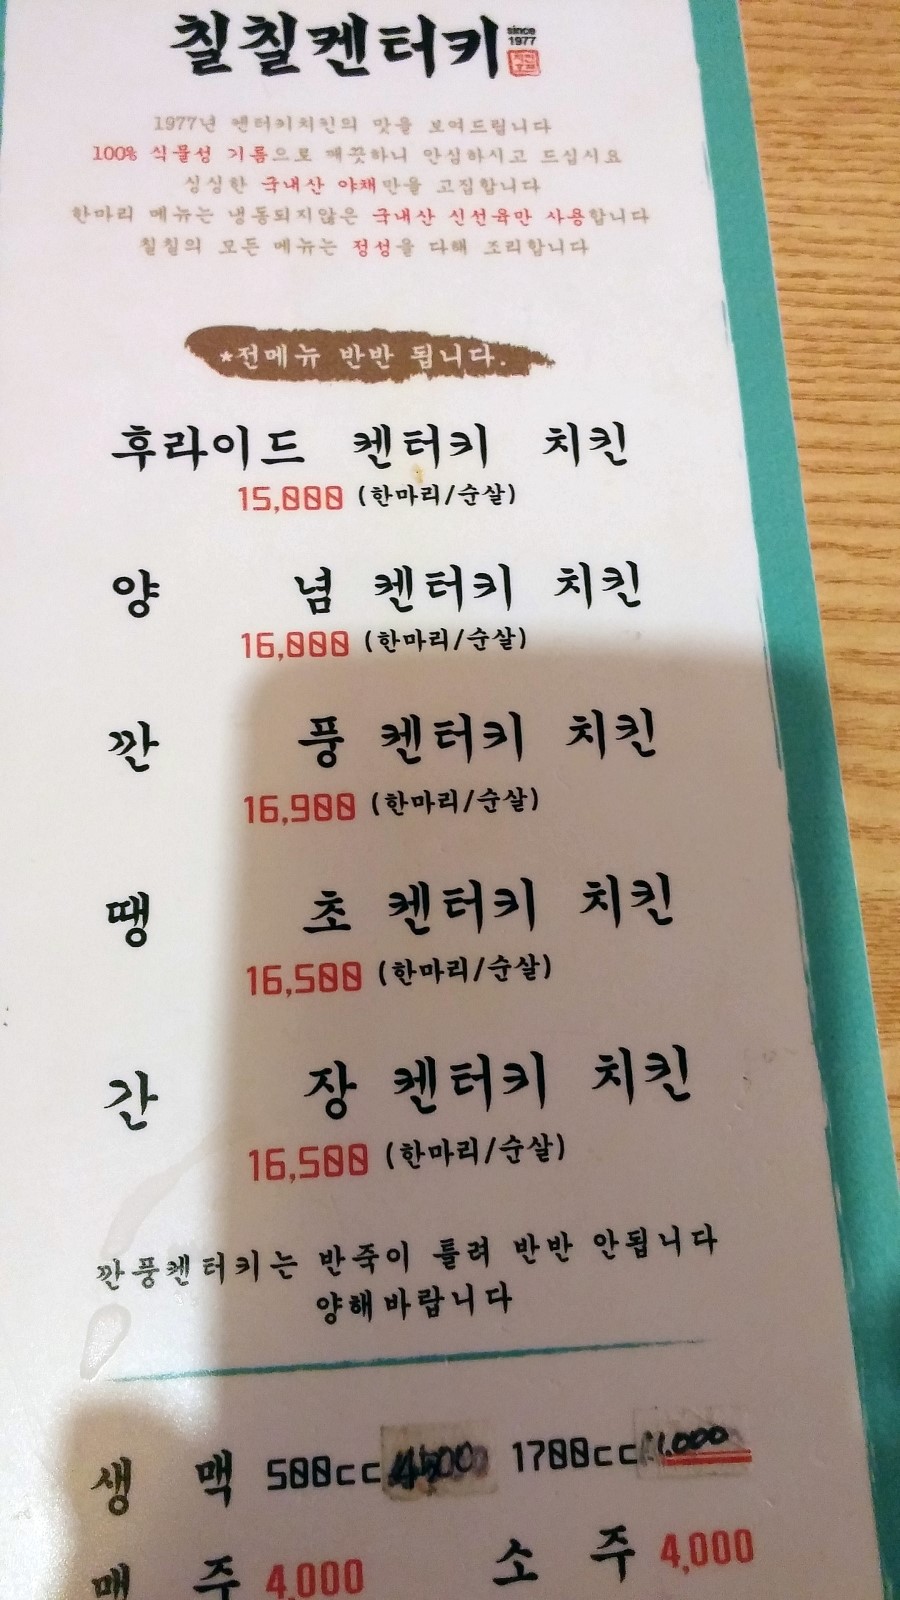 칠칠켄터키
since
1977
1977년 켄터키치킨의 맛을 보여드립니다
100% 식물성 기름으로 깨끗하니 안심하시고 드십시요
싱싱한 국내산 야채만을 고집합니다
한마리 메뉴는 냉동되지않은 국내산 신선육만 사용합니다
칠칠의 모든 메뉴는 정성을 다해 조리합니다
*전메뉴 반반 됩니다.
후라이드 켄터키 치킨
15,000 (한마리/순살)
양 념 켄터키 치킨
16,000 (한마리/순살)
깐 풍 켄터키 치킨
16,900 (한마리/순살)
땡 초 켄터키 치킨
16,500 (한마리/순살)
간 장 켄터키 치킨
16,500 (한마리/순살)
깐풍켄터키는 반죽이 틀려 반반 안됩니다
양해바랍니다
생 맥 500cc 4500 1700cc 11.000
맥 주 4,000 소 주 4,000